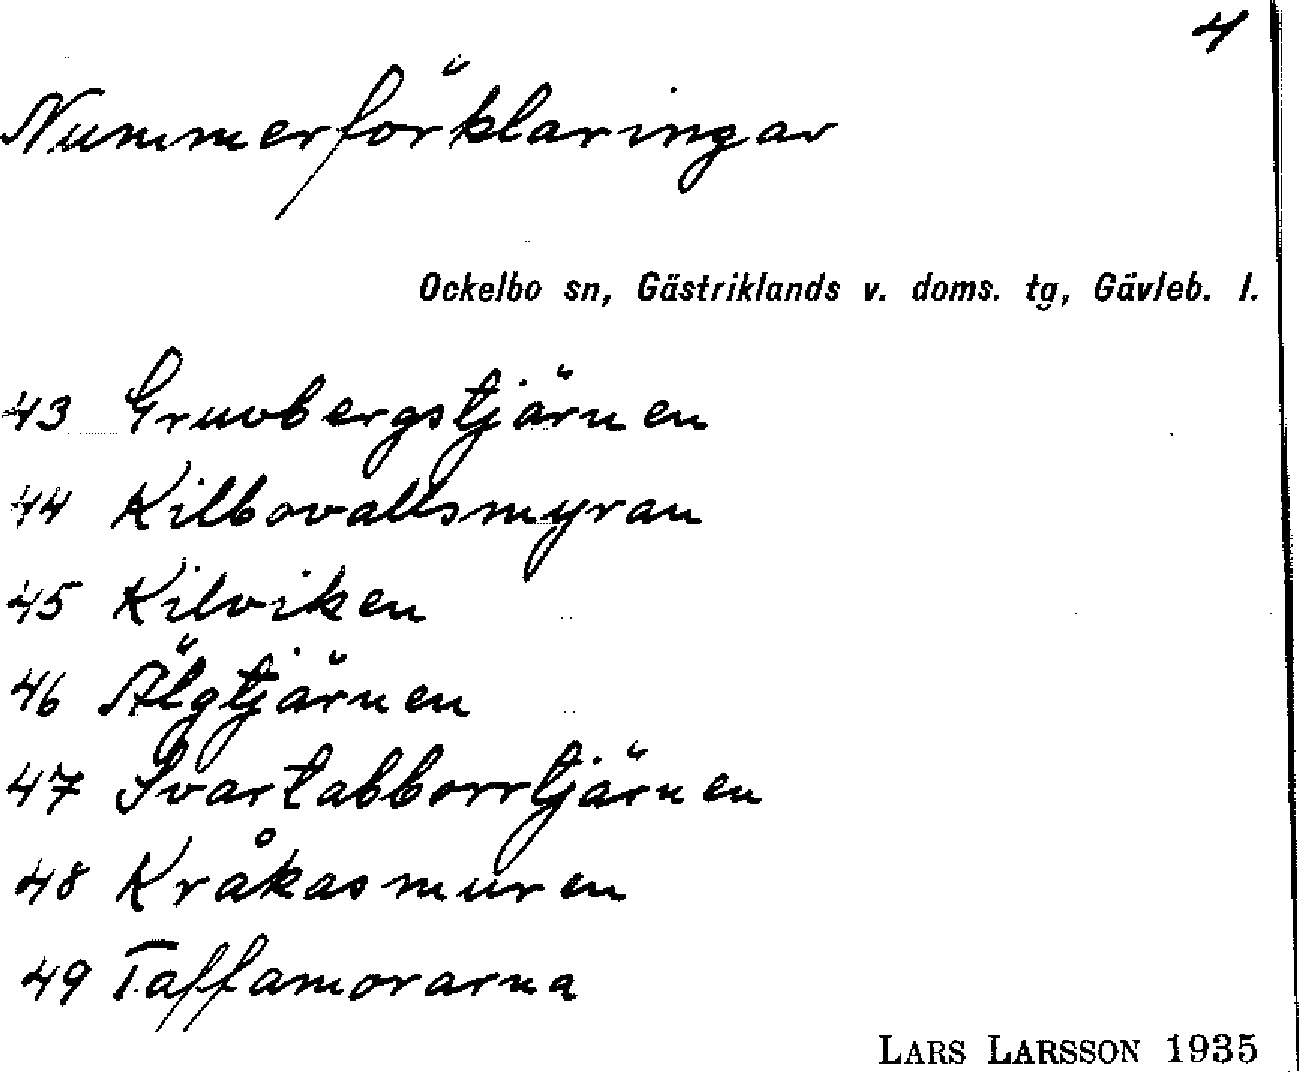 4
Nummerförklaringar
Ockelbo sn, Gästriklands v. doms. tg, Gävleb. l.
43 Gruvbergstjärnen
44 Kilbovallsmyran
45 Kilviken
46 Älgtjärnen
47 Svartabborrtjärnen
48 Kråkasmuren
49 Taffamorarna
LARS LARSSON 1935